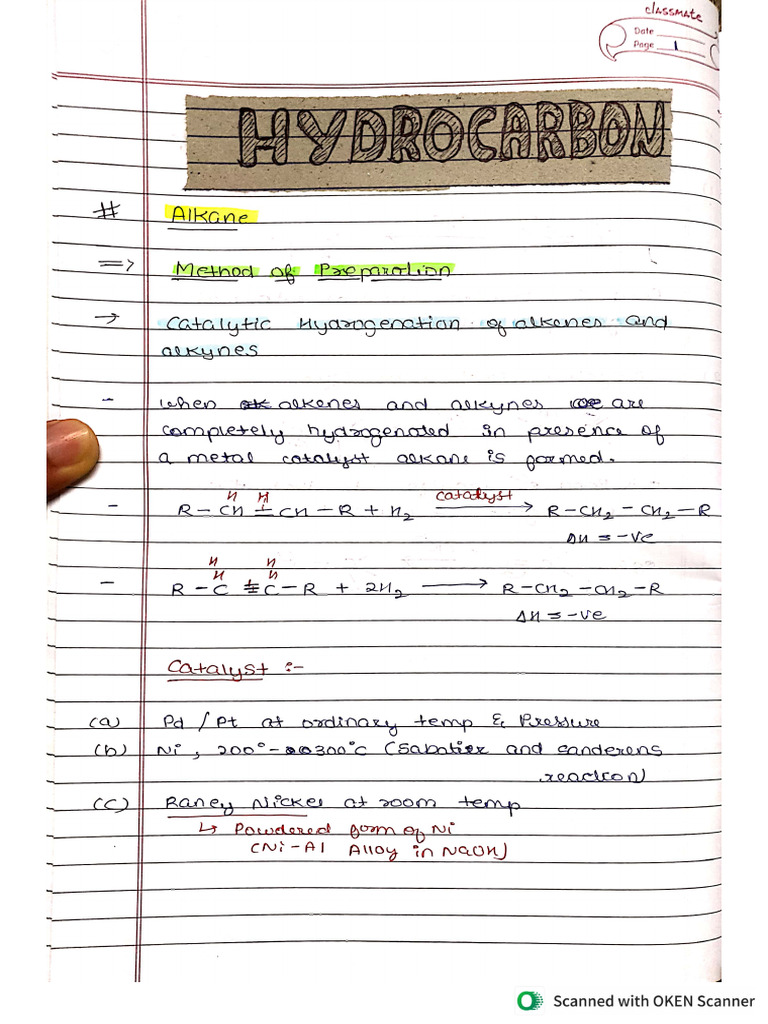 classmate
Date
Page 1
HYDROCARBON
# Alkane
=> Method of Preparation
→ Catalytic Hydrogenation of alkenes and
alkynes
- When alkenes and alkynes are
completely hydrogenated in presence of
a metal catalyst alkane is formed.
H H
- R-CH=CH-R + H2 catalyst → R-CH2-CH2-R
ΔH = -ve
H H
H H
- R-C≡C-R + 2H2 → R-CH2-CH2-R
ΔH = -ve
Catalyst :-
(a) Pd/Pt at ordinary temp & Pressure
(b) Ni, 200°-300°C (Sabatier and sanderens
reaction)
(c) Raney Nickel at room temp
↳ Powdered form of Ni
(Ni-Al Alloy in NaOH)
Scanned with OKEN Scanner